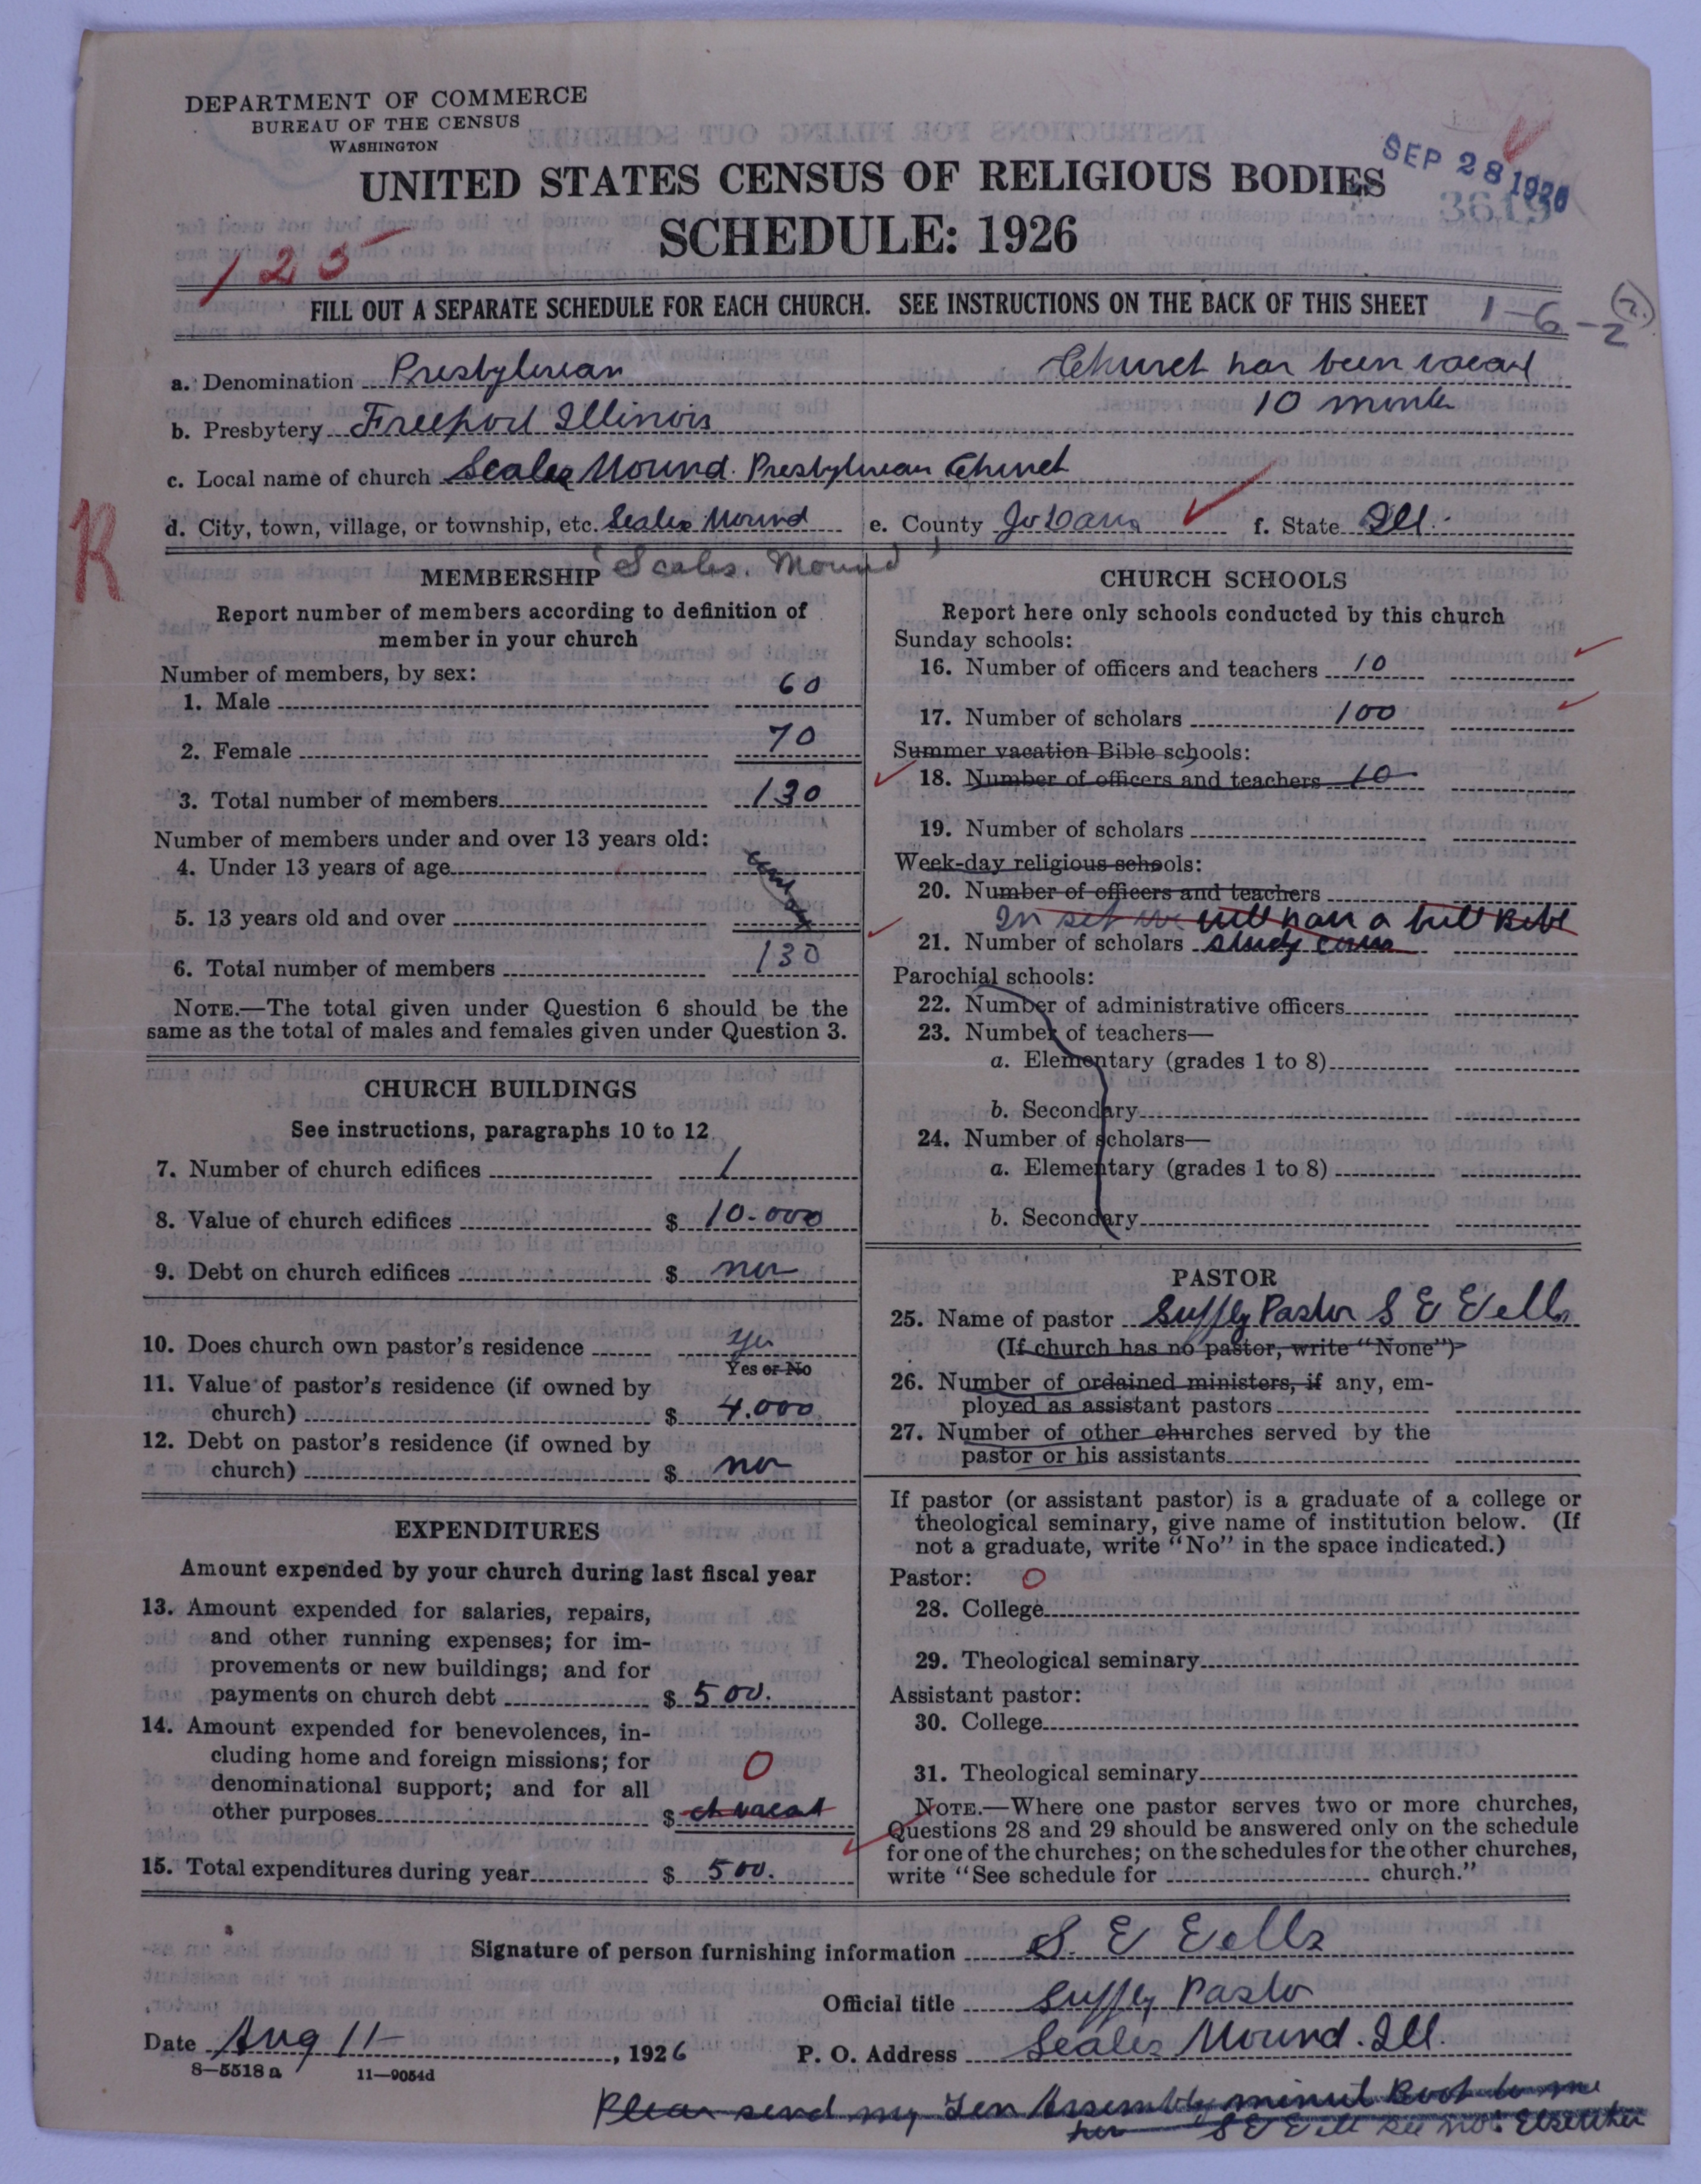 DEPARTMENT OF COMMERCE
BUREAU OF THE CENSUS
WASHINGTON
UNITED STATES CENSUS OF RELIGIOUS BODIES
SEP 28 1926
SCHEDULE: 1926
125
FILL OUT A SEPARATE SCHEDULE FOR EACH CHURCH. SEE INSTRUCTIONS ON THE BACK OF THIS SHEET
1-6-2
a. Denomination Presbyterian Church has been vacant
10 months
b. Presbytery Freeport Illinois
c. Local name of church Scales Mound Presbyterian Church
d. City, town, village, or township, etc. Scales Mound e. County Jo Daves f. State Ill.
R
(Scales. Mound)
MEMBERSHIP
Report number of members according to definition of
member in your church
Number of members, by sex:
1. Male 60
2. Female 70
3. Total number of members 130
Number of members under and over 13 years old:
4. Under 13 years of age
5. 13 years old and over
6. Total number of members 130
NOTE.—The total given under Question 6 should be the
same as the total of males and females given under Question 3.
CHURCH BUILDINGS
See instructions, paragraphs 10 to 12
7. Number of church edifices 1
8. Value of church edifices $ 10.000
9. Debt on church edifices $ no
10. Does church own pastor's residence yes
Yes or No
11. Value of pastor's residence (if owned by
church) $ 4.000
12. Debt on pastor's residence (if owned by
church) $ no
EXPENDITURES
Amount expended by your church during last fiscal year
13. Amount expended for salaries, repairs,
and other running expenses; for im-
provements or new buildings; and for
payments on church debt $ 500.
14. Amount expended for benevolences, in-
cluding home and foreign missions; for
denominational support; and for all
0
other purposes $ ch vacat
15. Total expenditures during year $ 500.
CHURCH SCHOOLS
Report here only schools conducted by this church
Sunday schools:
16. Number of officers and teachers 10
17. Number of scholars 100
Summer vacation Bible schools:
18. Number of officers and teachers 10
19. Number of scholars
Week-day religious schools:
20. Number of officers and teachers
will have a full Bible
21. Number of scholars study
Parochial schools:
22. Number of administrative officers
23. Number of teachers—
a. Elementary (grades 1 to 8)
b. Secondary
24. Number of scholars—
a. Elementary (grades 1 to 8)
b. Secondary
PASTOR
25. Name of pastor Supply Pastor S E Eells
(If church has no pastor, write "None")
26. Number of ordained ministers, if any, em-
ployed as assistant pastors
27. Number of other churches served by the
pastor or his assistants
If pastor (or assistant pastor) is a graduate of a college or
theological seminary, give name of institution below. (If
not a graduate, write "No" in the space indicated.)
Pastor: 0
28. College
29. Theological seminary
Assistant pastor:
30. College
31. Theological seminary
NOTE.—Where one pastor serves two or more churches,
Questions 28 and 29 should be answered only on the schedule
for one of the churches; on the schedules for the other churches,
write "See schedule for church."
Signature of person furnishing information S. E Eells
Official title Supply Pastor
Date Aug 11 , 1926 P. O. Address Scales Mound. Ill.
8-5518 a 11—9054d
Please send my Gen Assembly minut Book to me